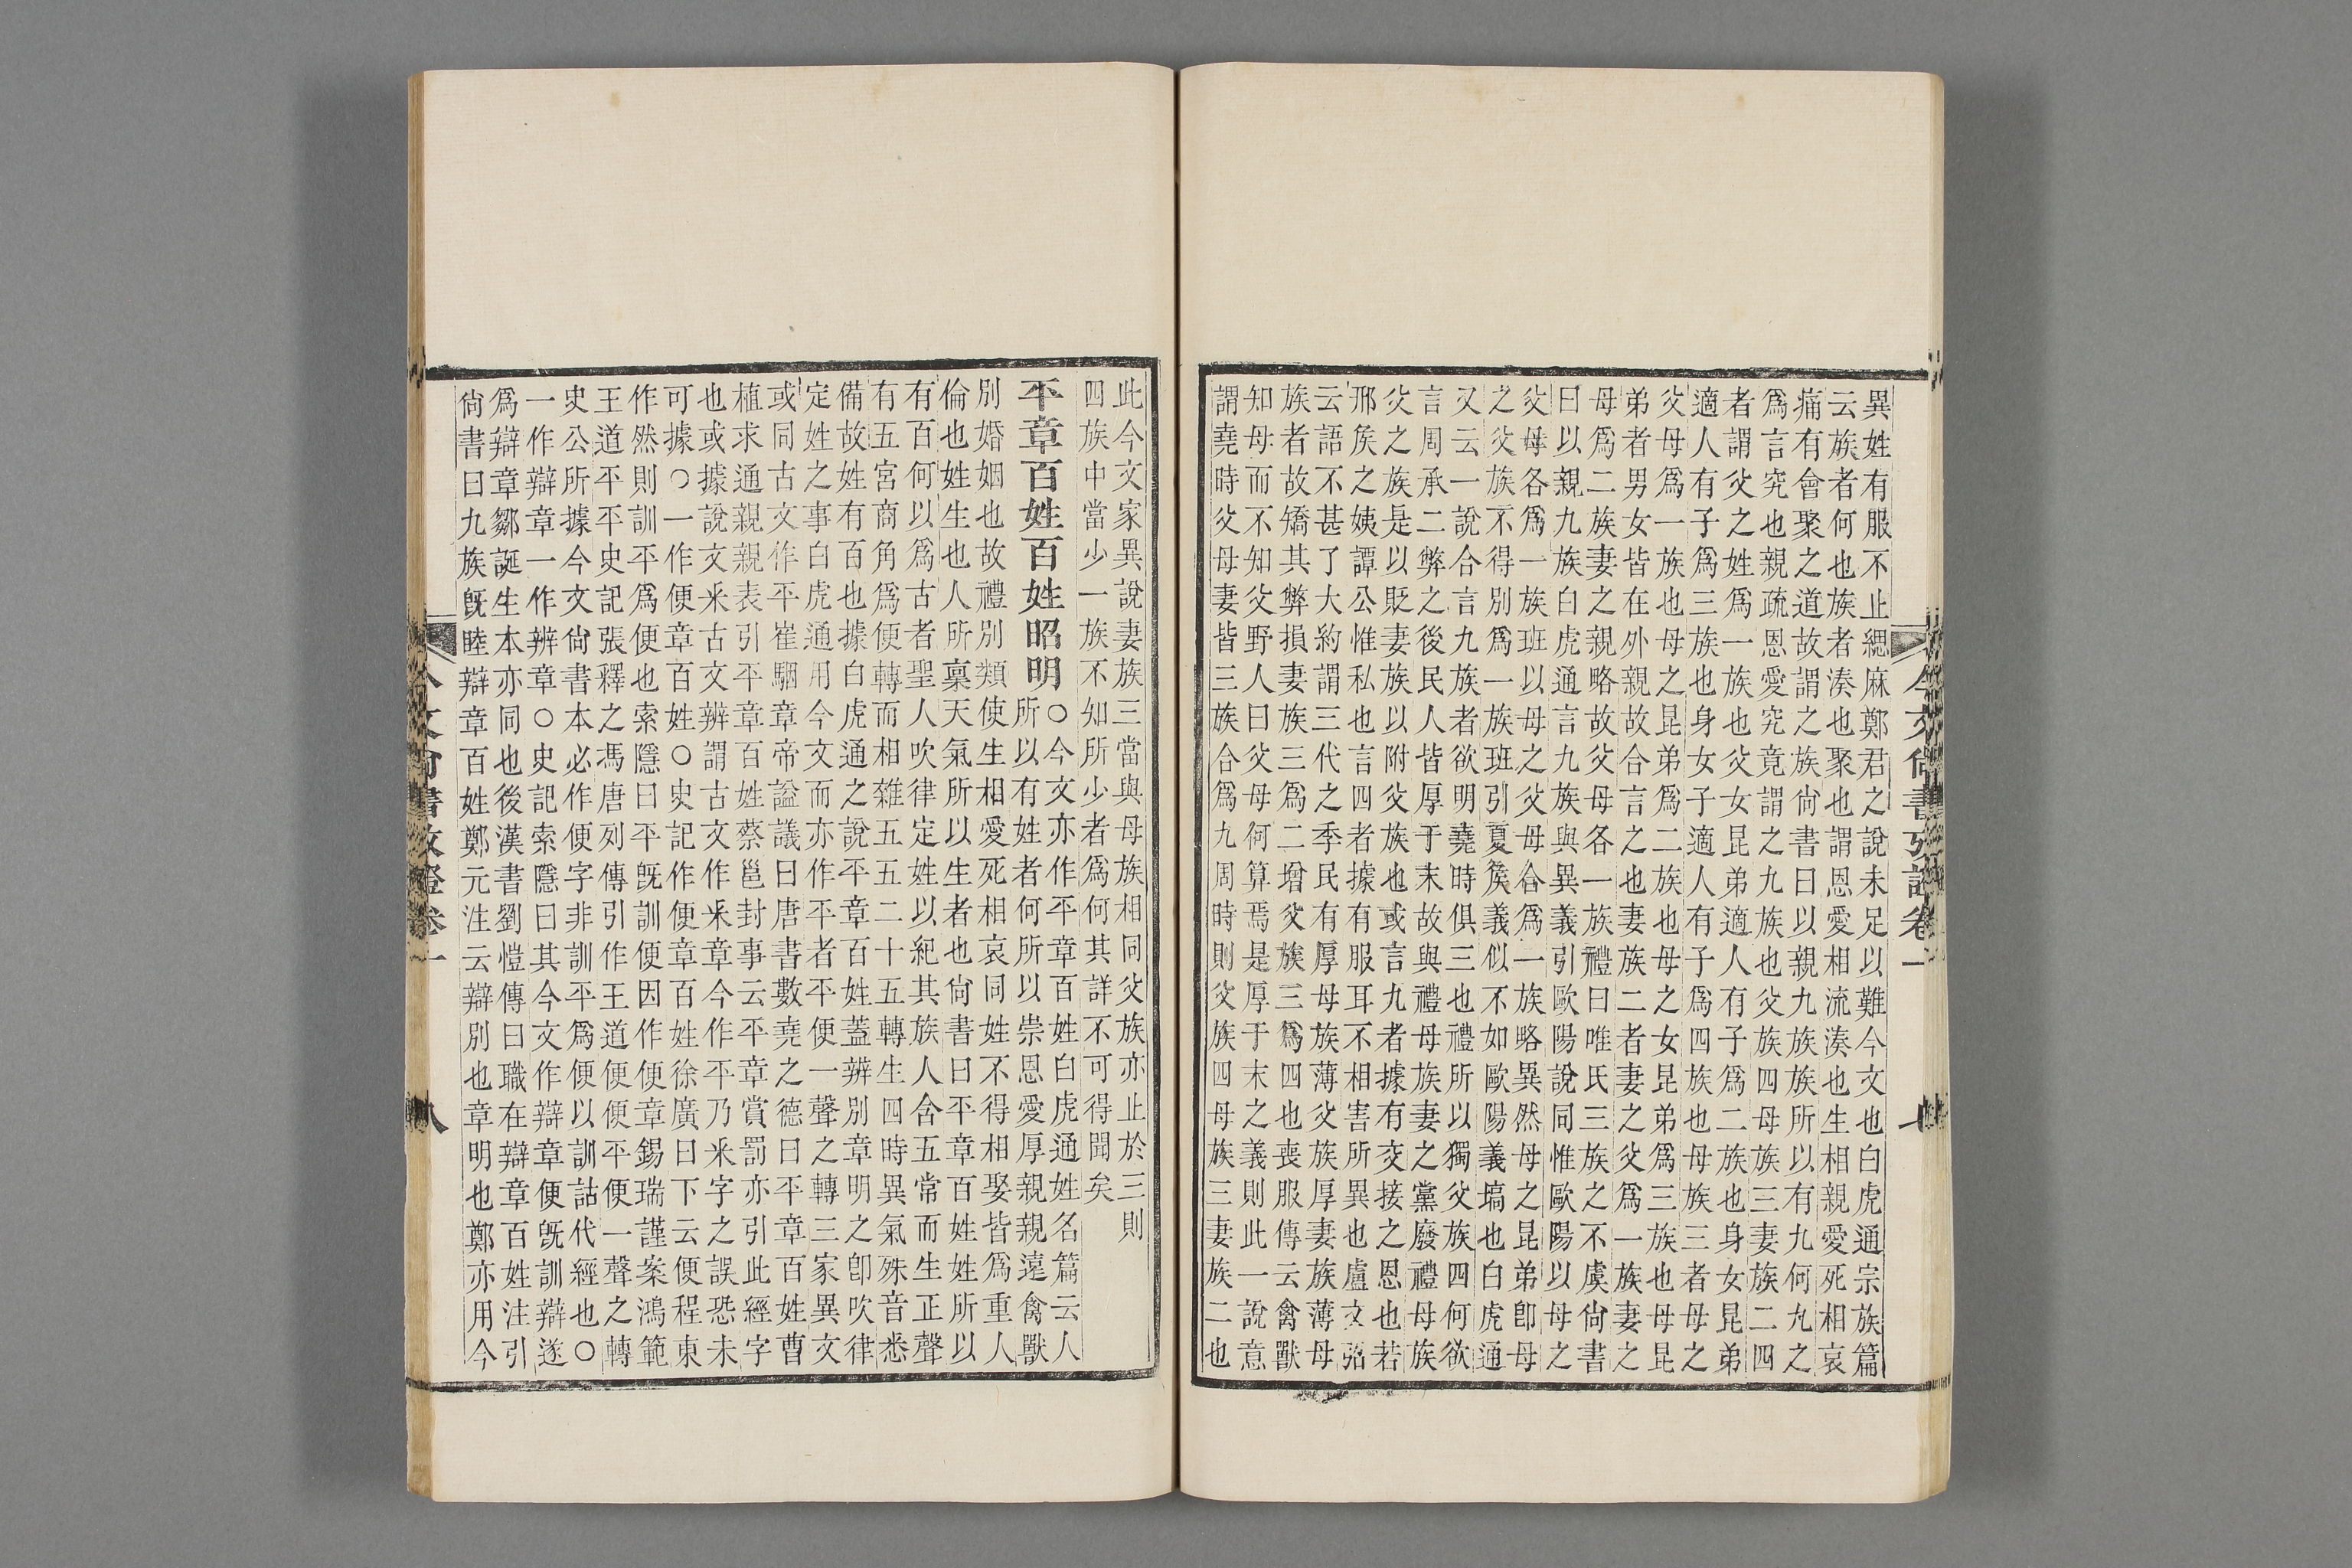 今文尙書攷證卷一 七
異姓有服不止緦麻鄭君之說未足以難今文也白虎通宗族篇
云族者何也族者湊也聚也謂恩愛相流湊也生相親愛死相哀
痛有會聚之道故謂之族尙書曰以親九族族所以有九何九之
爲言究也親疏恩愛究竟謂之九族也父族四母族三妻族二四
者謂父之姓爲一族也父女昆弟適人有子爲二族也身女昆弟
適人有子爲三族也身女子適人有子爲四族也母族三者母之
父母爲一族也母之昆弟爲二族也母之女昆弟爲三族也母昆
弟者男女皆在外親故合言之也妻族二者妻之父爲一族妻之
母爲二族妻之親略故父母各一族禮曰唯氏三族之不虞尙書
曰以親九族白虎通言九族與異義引歐陽說同惟歐陽以母之
父母各爲一族班以母之父母合爲一族略異然母之昆弟卽母
之父族不得別爲一族班引夏矦義似不如歐陽義塙也白虎通
又云一說合言九族者欲明堯時俱三也禮所以獨父族四何欲
言周承二弊之後民人皆厚于末故與禮母族妻之黨廢禮母族
父之族是以貶妻族以附父族也或言九者據有交接之恩也若
邢矦之姨譚公惟私也言四者據有服耳不相害所異也盧文弨
云語不甚了大約謂三代之季民有厚母族薄父族厚妻族薄母
族者故矯其弊損妻族三爲二增父族三爲四也喪服傳云禽獸
知母而不知父野人曰父母何算焉是厚于末之義則此一說意
謂堯時父母妻皆三族合爲九周時則父族四母族三妻族二也
此今文家異說妻族三當與母族相同父族亦止於三則
四族中當少一族不知所少者爲何其詳不可得聞矣
平章百姓百姓昭明
○今文亦作平章百姓白虎通姓名篇云人
所以有姓者何所以崇恩愛厚親親遠禽獸
別婚姻也故禮別類使生相愛死相哀同姓不得相娶皆爲重人
倫也姓生也人所稟天氣所以生者也尙書曰平章百姓姓所以
有百何以爲古者聖人吹律定姓以紀其族人含五常而生正聲
有五宮商角爲便轉而相雜五五二十五轉生四時異氣殊音悉
備故姓有百也據白虎通之說平章百姓蓋辨別章明之卽吹律
定姓之事白虎通用今文而亦作平者平便一聲之轉三家異文
或同古文作平崔駰章帝諡議曰唐書數堯之德曰平章百姓曹
植求通親親表引平章百姓蔡邕封事云平章賞罰亦引此經字
也或據說文釆古文辨謂古文作釆章今作平乃釆字之誤恐未
可據○一作便章百姓○史記作便章百姓徐廣曰下云便程東
作然則訓平爲便也索隱曰平旣訓便因作便章錫瑞謹案鴻範
王道平平史記張釋之馮唐列傳引作王道便便平便一聲之轉
史公所據今文尙書本必作便字非訓平爲便以訓詁代經也○
一作辯章一作辨章○史記索隱曰其今文作辯章便旣訓辯遂
爲辯章鄒誕生本亦同也後漢書劉愷傳曰職在辯章百姓注引
尙書曰九族旣睦辯章百姓鄭元注云辯別也章明也鄭亦用今
今文尙書攷證卷一 八